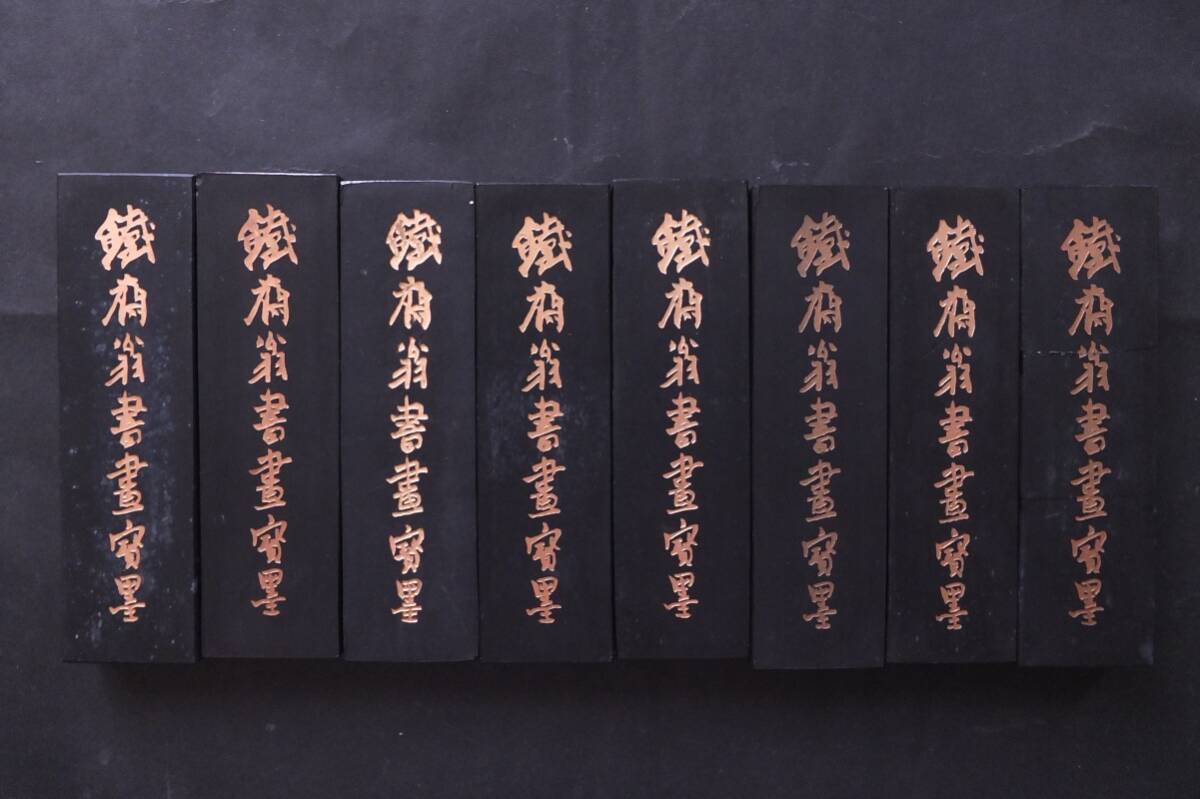 鐵齋翁書畫寶墨
鐵齋翁書畫寶墨
鐵齋翁書畫寶墨
鐵齋翁書畫寶墨
鐵齋翁書畫寶墨
鐵齋翁書畫寶墨
鐵齋翁書畫寶墨
鐵齋翁書畫寶墨